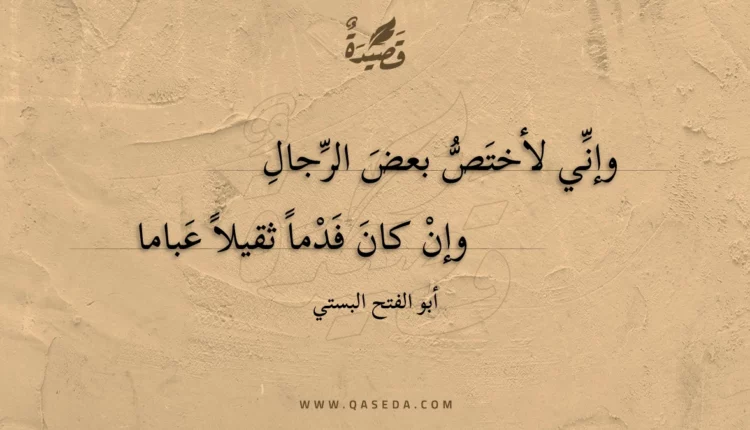 قَصِيدَةٌ
وإنِّي لأختَصُّ بعضَ الرِّجالِ
وإنْ كانَ فَدْماً ثقيلاً عَباما
أبو الفتح البستي
WWW.QASEDA.COM